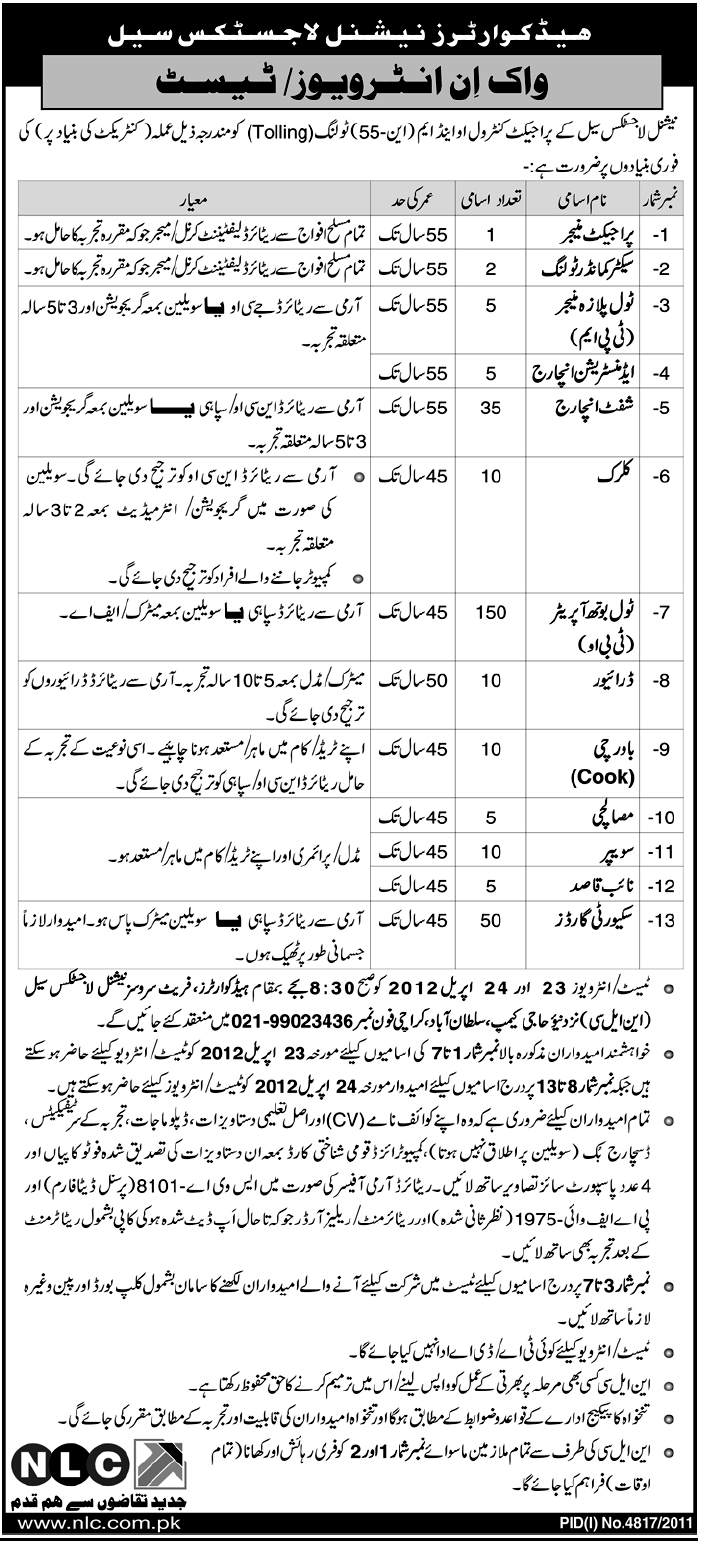 ہیڈکوارٹرز نیشنل لاجسٹکس سیل
واک اِن انٹرویوز/ ٹیسٹ
نیشنل لاجسٹکس سیل کے پراجیکٹ کنٹرول او اینڈ ایم (این-55) ٹولنگ (Tolling) کو مندرجہ ذیل عملہ (کنٹریکٹ کی بنیاد پر) کی
فوری بنیادوں پر ضرورت ہے:-
نمبر شمار نام اسامی تعداد اسامی عمر کی حد معیار
1- پراجیکٹ منیجر 1 55 سال تک تمام مسلح افواج سے ریٹائرڈ لیفٹیننٹ کرنل/ میجر جو کہ مقررہ تجربہ کا حامل ہو۔
2- سیکٹر کمانڈر ٹولنگ 2 55 سال تک تمام مسلح افواج سے ریٹائرڈ لیفٹیننٹ کرنل/ میجر جو کہ مقررہ تجربہ کا حامل ہو۔
3- ٹول پلازہ منیجر 5 55 سال تک آرمی سے ریٹائرڈ جے سی او یا سویلین بمعہ گریجویشن اور 3 تا 5 سالہ
(ٹی پی ایم) متعلقہ تجربہ۔
4- ایڈمنسٹریشن انچارج 5 55 سال تک
5- شفٹ انچارج 35 55 سال تک آرمی سے ریٹائرڈ این سی او/ سپاہی یا سویلین بمعہ گریجویشن اور
3 تا 5 سالہ متعلقہ تجربہ۔
6- کلرک 10 45 سال تک آرمی سے ریٹائرڈ این سی او کو ترجیح دی جائے گی۔ سویلین
کی صورت میں گریجویشن/ انٹرمیڈیٹ بمعہ 2 تا 3 سالہ
متعلقہ تجربہ۔
کمپیوٹر جاننے والے افراد کو ترجیح دی جائے گی۔
7- ٹول بوتھ آپریٹر 150 45 سال تک آرمی سے ریٹائرڈ سپاہی یا سویلین بمعہ میٹرک/ ایف اے۔
(ٹی بی او)
8- ڈرائیور 10 50 سال تک میٹرک/ مڈل بمعہ 5 تا 10 سالہ تجربہ۔ آرمی سے ریٹائرڈ ڈرائیوروں کو
ترجیح دی جائے گی۔
9- باورچی 10 45 سال تک اپنے ٹریڈ/ کام میں ماہر/ مستعد ہونا چاہیئے۔ اسی نوعیت کے تجربہ کے
(Cook) حامل ریٹائرڈ این سی او/ سپاہی کو ترجیح دی جائے گی۔
10- مصالچی 5 45 سال تک
11- سویپر 10 45 سال تک مڈل/ پرائمری اور اپنے ٹریڈ/ کام میں ماہر/ مستعد ہو۔
12- نائب قاصد 5 45 سال تک
13- سکیورٹی گارڈز 50 45 سال تک آرمی سے ریٹائرڈ سپاہی یا سویلین میٹرک پاس ہو۔ امیدوار لازماً
جسمانی طور پر ٹھیک ہوں۔
ٹیسٹ/ انٹرویوز 23 اور 24 اپریل 2012 کو صبح 8:30 بجے بمقام ہیڈکوارٹرز، فریٹ سروسز نیشنل لاجسٹکس سیل
(این ایل سی) نزد نیو حاجی کیمپ، سلطان آباد، کراچی فون نمبر 021-99023436 میں منعقد کئے جائیں گے۔
خواہشمند امیدواران مذکورہ بالا نمبر شمار 1 تا 7 کی اسامیوں کیلئے مورخہ 23 اپریل 2012 کو ٹیسٹ/ انٹرویو کیلئے حاضر ہو سکتے
ہیں جبکہ نمبر شمار 8 تا 13 پر درج اسامیوں کیلئے امیدوار مورخہ 24 اپریل 2012 کو ٹیسٹ/ انٹرویوز کیلئے حاضر ہو سکتے ہیں۔
تمام امیدواران کیلئے ضروری ہے کہ وہ اپنے کوائف نامے (CV) اور اصل تعلیمی دستاویزات، ڈپلومہ جات، تجربہ کے سرٹیفکیٹس،
ڈسچارج بُک (سویلین پر اطلاق نہیں ہوتا)، کمپیوٹرائزڈ قومی شناختی کارڈ بمعہ ان دستاویزات کی تصدیق شدہ فوٹو کاپیاں اور
4 عدد پاسپورٹ سائز تصاویر ساتھ لائیں۔ ریٹائرڈ آرمی آفیسر کی صورت میں ایس وی اے-8101 (پرسنل ڈیٹا فارم) اور
پی اے ایف وائی-1975 (نظرثانی شدہ) اور ریٹائرمنٹ/ ریلیز آرڈر جو کہ تا حال اَپ ڈیٹ شدہ ہو کی کاپی بشمول ریٹائرمنٹ
کے بعد تجربہ بھی ساتھ لائیں۔
نمبر شمار 3 تا 7 پر درج اسامیوں کیلئے ٹیسٹ میں شرکت کیلئے آنے والے امیدواران لکھنے کا سامان بشمول کلپ بورڈ اور پین وغیرہ
لازماً ساتھ لائیں۔
ٹیسٹ/ انٹرویو کیلئے کوئی ٹی اے/ ڈی اے ادا نہیں کیا جائے گا۔
این ایل سی کسی بھی مرحلہ پر بھرتی کے عمل کو واپس لینے/ اس میں ترمیم کرنے کا حق محفوظ رکھتا ہے۔
تنخواہ کا پیکیج ادارے کے قواعد و ضوابط کے مطابق ہوگا اور تنخواہ امیدواران کی قابلیت اور تجربہ کے مطابق مقرر کی جائے گی۔
این ایل سی کی طرف سے تمام ملازمین ماسوائے نمبر شمار 1 اور 2 کو فری رہائش اور کھانا (تمام
اوقات) فراہم کیا جائے گا۔
NLC
جدید تقاضوں سے ہم قدم
www.nlc.com.pk
PID(I) No.4817/2011